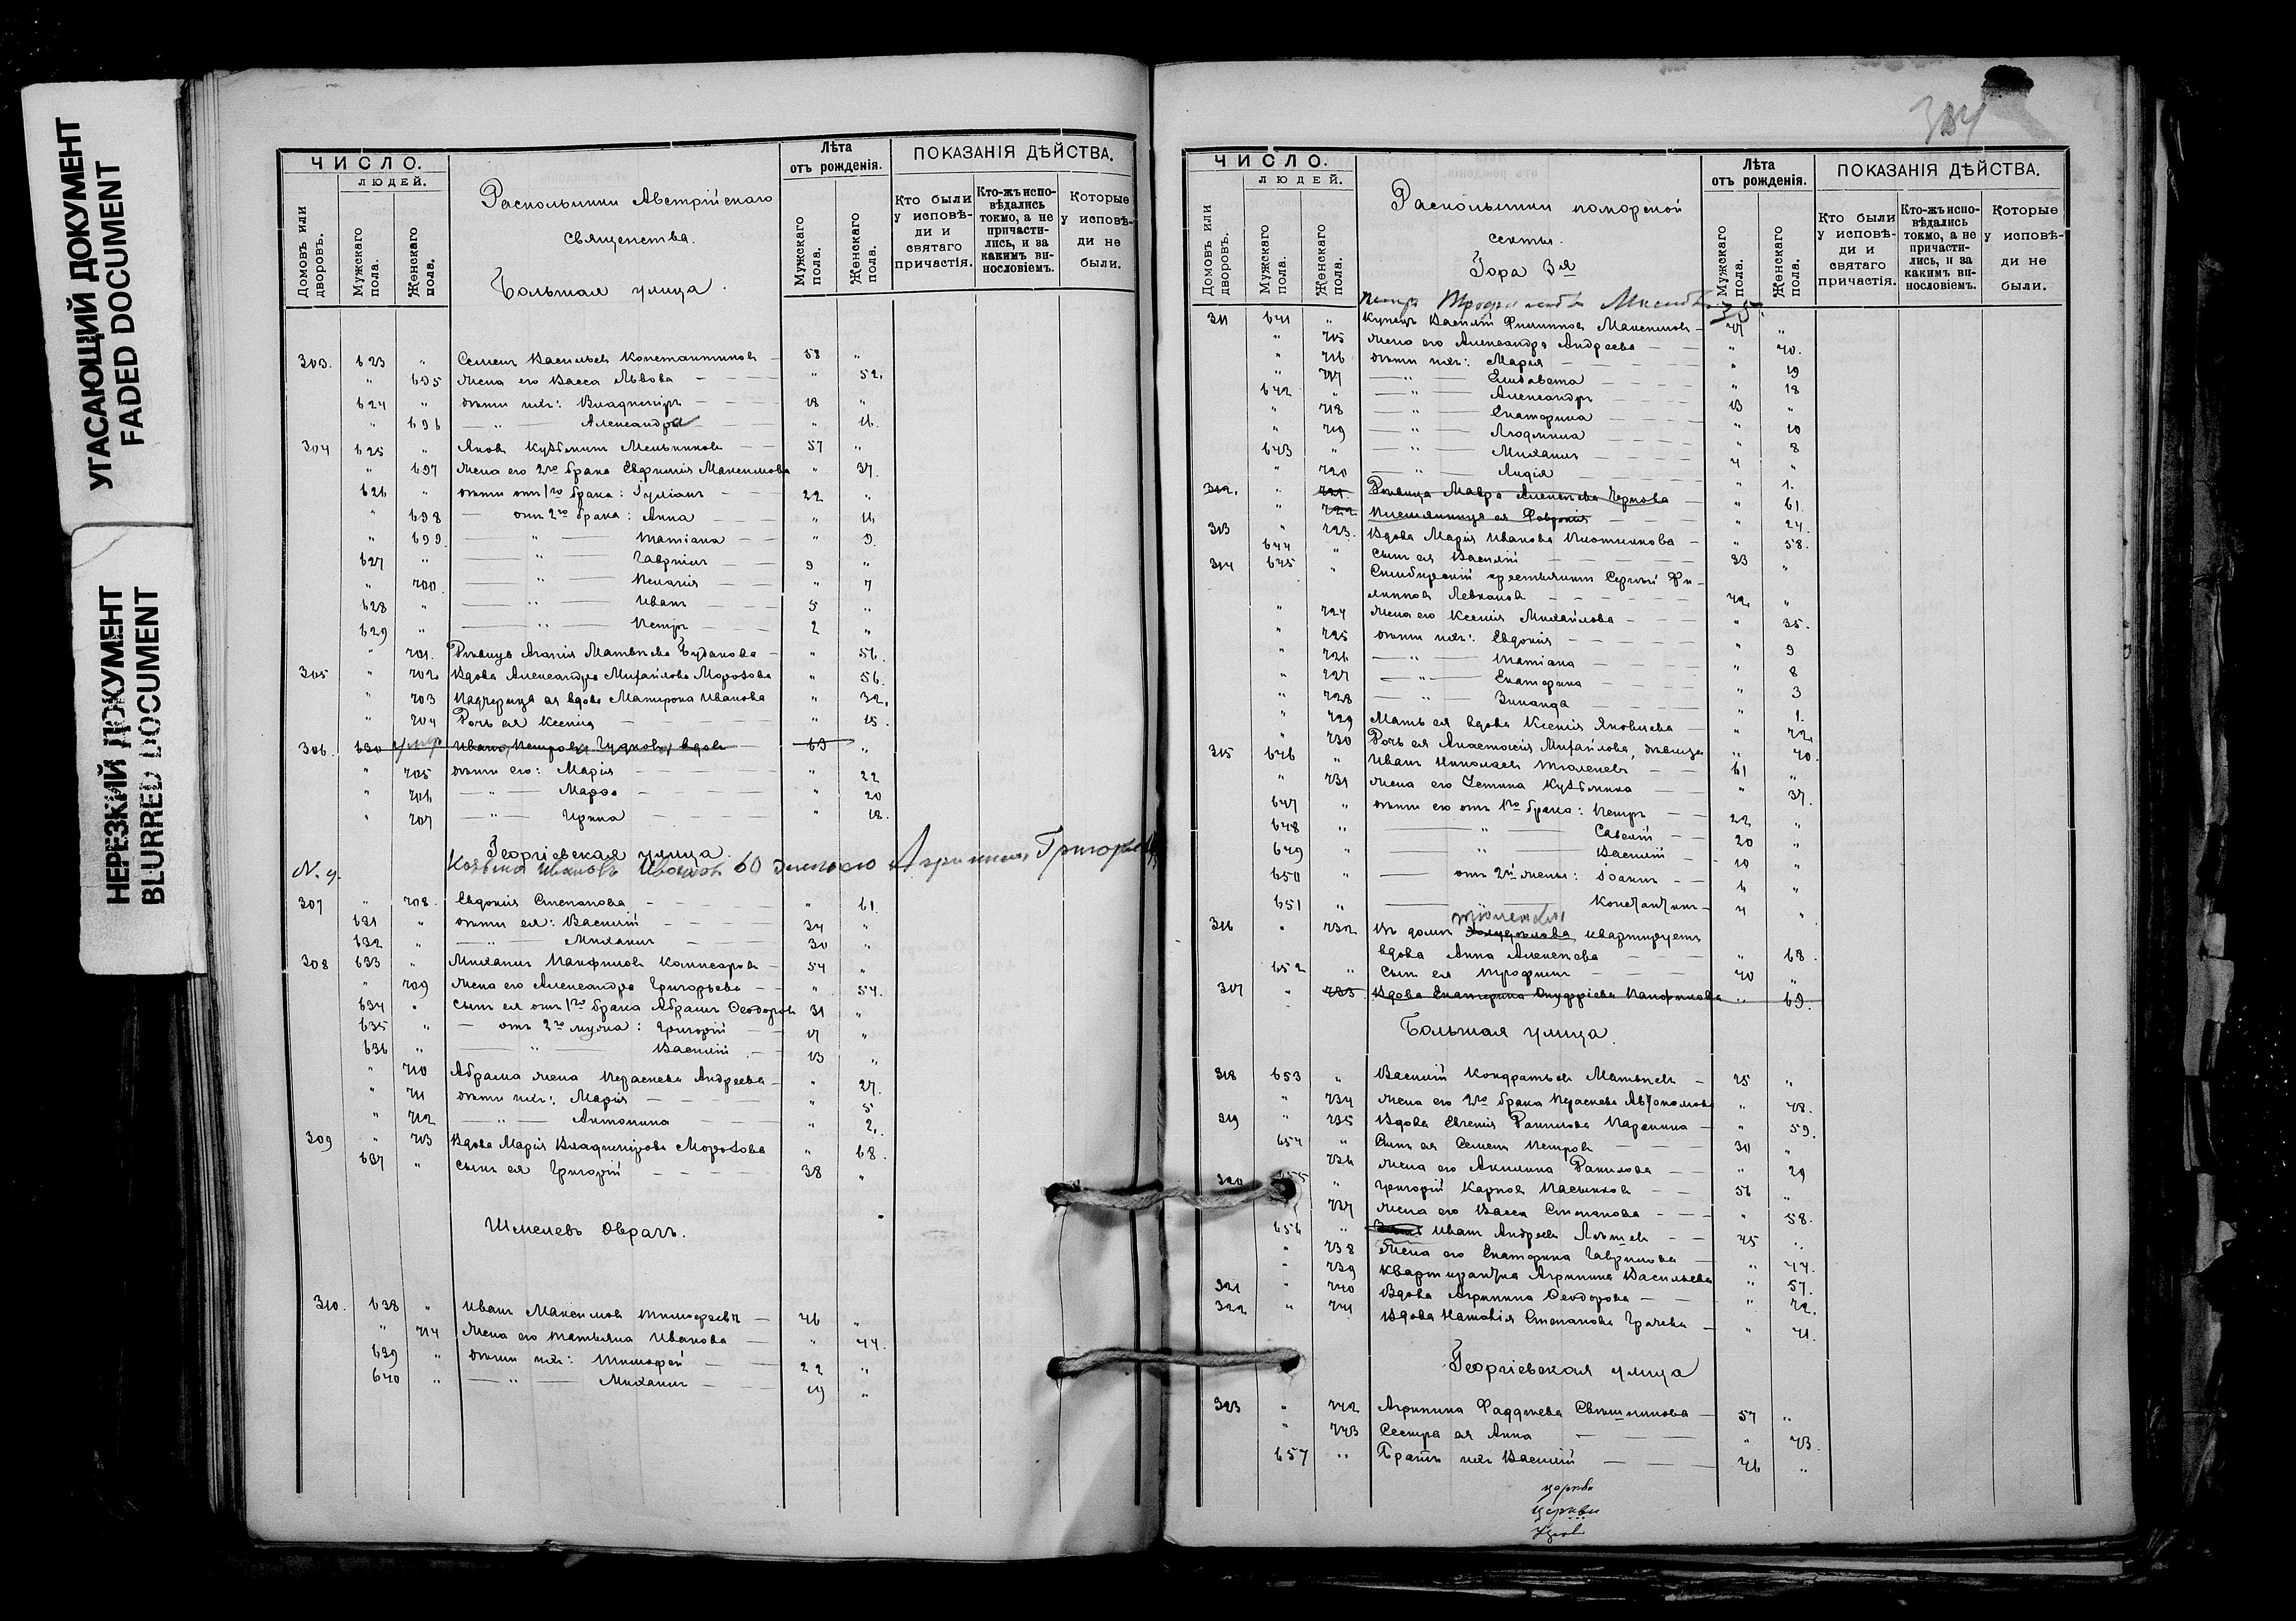 УГАСАЮЩИЙ ДОКУМЕНТ
FADED DOCUMENT
НЕРЕЗКИЙ ДОКУМЕНТ
BLURRED DOCUMENT
ЧИСЛО.
ЛЮДЕЙ.
Домовъ или дворовъ.
Мужскаго пола.
Женскаго пола.
Раскольники Австрійскаго
священства.
Большая улица.
Лѣта
отъ рожденія.
Мужскаго пола.
Женскаго пола.
ПОКАЗАНІЯ ДѢЙСТВА.
Кто были
у исповѣ-
ди и
святаго
причастія.
Кто-жъ испо-
вѣдались
токмо, а не
причасти-
лись, и за
какимъ ви-
нословіемъ.
Которые
у исповѣ-
ди не
были.
303. 623 " Семенъ Васильевъ Константиновъ 58 "
" 695 жена его Васса Львова " 52.
624 " дѣти ихъ: Владимиръ 18 "
" 696 " Александра " 16.
304 625 " Яковъ Кузьминъ Мельниковъ 57 "
" 697 жена его 2го брака Евфимія Максимова " 37.
626 " дѣти отъ 1го брака: Іуліанъ 22 "
" 698 отъ 2го брака: Анна " 16
" 699. " Татіана " 9.
627 " " Гавріилъ 9 "
" 700. " Пелагія " 7
628 " " Иванъ 5 "
629 " " Петръ 2 "
" 701. Дѣвица Агапія Матвѣева Будакова " 56.
305 " 702 Вдова Александра Михайлова Морозова " 56.
" 703 Падчерица ея вдова Матрона Иванова " 32.
" 704 Дочь ея Ксенія " 15.
306. 630 умер Иванъ Петровъ Чудковъ, вдовъ 63 "
" 705 дѣти его: Марія " 22
" 706 " Мавра " 20
" 707 " Ирина " 18.
Георгіевская улица.
N. 9. Козьма Ивановъ 60 жена его Агрипина Григорьев
307 " 708. Евдокія Степанова " 61.
631 " дѣти ея: Василій 34 "
632 " " Михаилъ 30 "
308 633 " Михаилъ Панфиловъ Комисаровъ 54 "
" 709 жена его Александра Григорьева " 54.
634 " сынъ ея отъ 1го брака Абрамъ Ѳеодоровъ 31 "
635 " отъ 2го мужа: Григорій 17 "
636 " " Василій 13 "
" 710 Абрама жена Параскева Андреева " 27.
" 711 дѣти ихъ: Марія " 5
" 712 " Антонина " 2.
309 " 713 Вдова Марія Владимірова Морозова " 68.
637 " сынъ ея Григорій 38 "
Шмелевъ Оврагъ.
310. 638 " Иванъ Максимовъ Тимофеевъ 46 "
" 714 жена его Татьяна Иванова " 44.
639 " дѣти ихъ: Тимофей 22 "
640 " " Михаилъ 19 "
ЧИСЛО.
ЛЮДЕЙ.
Домовъ или дворовъ.
Мужскаго пола.
Женскаго пола.
Раскольники поморской
секты.
Гора 3я
Лѣта
отъ рожденія.
Мужскаго пола.
Женскаго пола.
ПОКАЗАНІЯ ДѢЙСТВА.
Кто были
у исповѣ-
ди и
святаго
причастія.
Кто-жъ испо-
вѣдались
токмо, а не
причасти-
лись, и за
какимъ ви-
нословіемъ.
Которые
у исповѣ-
ди не
были.
35
311 641 " Купецъ Василій Филиповъ Максимовъ 47 "
" 715 жена его Александра Андреева " 40.
" 716 дѣти ихъ: Марія " 19
" 717 " Елизавета " 18
642 " " Александръ 13 "
" 718 " Екатерина " 10
" 719 " Людмила " 8
643 " " Михаилъ 4 "
" 720 " Лидія " 1.
312. " 721 Дѣвица Мавра Алексѣева Чернова " 61.
" 722 Племянница ея Февронія " 24.
313 " 723. Вдова Марія Иванова Плотникова " 58.
644 " Сынъ ея Василій 33 "
314 645 " Симбирскій крестьянинъ Сергій Фи-
липовъ Левкановъ 42. "
" 724 жена его Ксенія Михайлова " 35.
" 725 дѣти ихъ: Евдокія " 9
" 726 " Татіана " 8
" 727 " Екатерина " 3
" 728 " Зинаида " 1.
" 729 Мать ея вдова Ксенія Яковлева " 72.
" 730 Дочь ея Анастасія Михайлова, дѣвица " 40.
315 646 " Иванъ Николаевъ Тюленевъ 61 "
" 731 жена его Устина Кузьмина " 37.
647 " дѣти его отъ 1го брака: Петръ 22 "
648 " " Савелій 20 "
649 " " Василій 10 "
650 " отъ 2й жены: Іоаннъ 6 "
651 " Константинъ 4 "
316 " 732 Въ домѣ квартируетъ
вдова Анна Алексѣева " 68.
652 " сынъ ея Трофимъ 40 "
317 " 733. Вдова Екатерина Онуфріева Панфилова " 69.
Большая улица.
318 653 " Василій Кондратьевъ Матвѣевъ 75 "
" 734 жена его 2го брака Параскева Автономова " 48.
319 " 735 Вдова Евгенія Данилова Паранина " 59.
654 " Сынъ ея Семенъ Петровъ 30 "
736 жена его Акилина Данилова " 29
320 655 " Григорій Карповъ Пасынковъ 56 "
737 жена его Васса Степанова " 58.
656 " Иванъ Андреевъ 45 "
" 738 жена его Екатерина Гаврилова " 44.
" 739 квартирантка Агрипина Васильева " 57.
321 " 740 Вдова Агрипина Ѳеодорова " 72.
322 " 741 Вдова Наталія Степанова Грачева " 71.
Георгіевская улица
323 " 742 Агрипина Фаддѣева Свѣшникова 57 "
" 743 Сестра ея Анна " 43.
657 " Братъ ихъ Василій 46 "
церкви
церкви